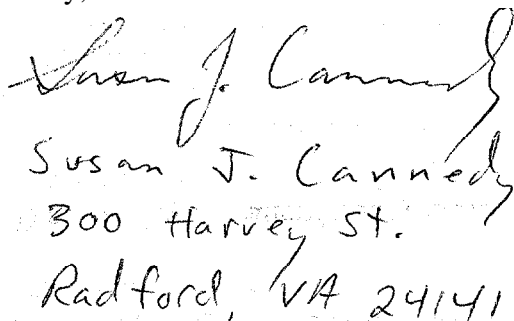 Susan J. Cannedy
Susan J. Cannedy
300 Harvey St.
Radford, VA 24141